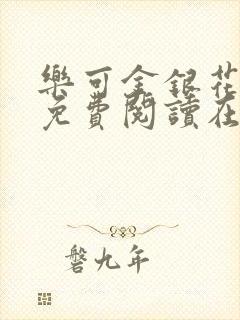 樂可金銀花
免費閱讀在
磐九年